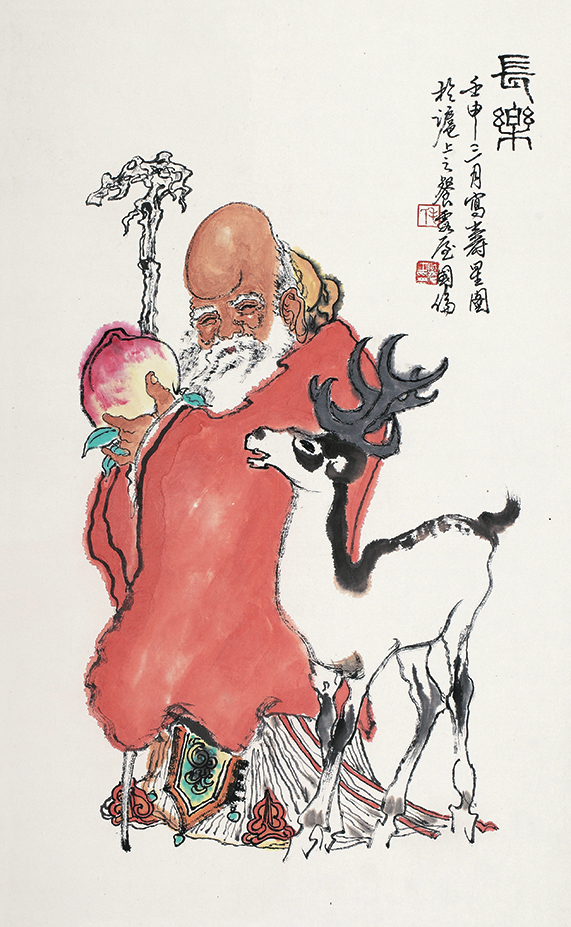 長樂
壬申三月寫壽星圖
於滬上之餐霞屋國倫